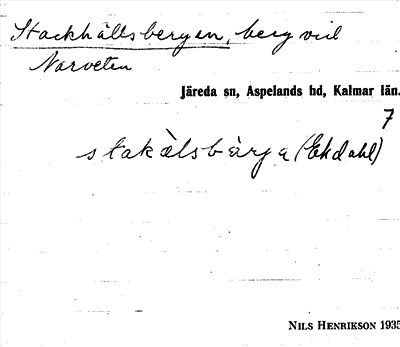 Stackhällsbergen, berg vid
Narveten
Järeda sn, Aspelands hd, Kalmar län.
7
stakàlsbàrga (Ekdahl)
NILS HENRIKSON 1935